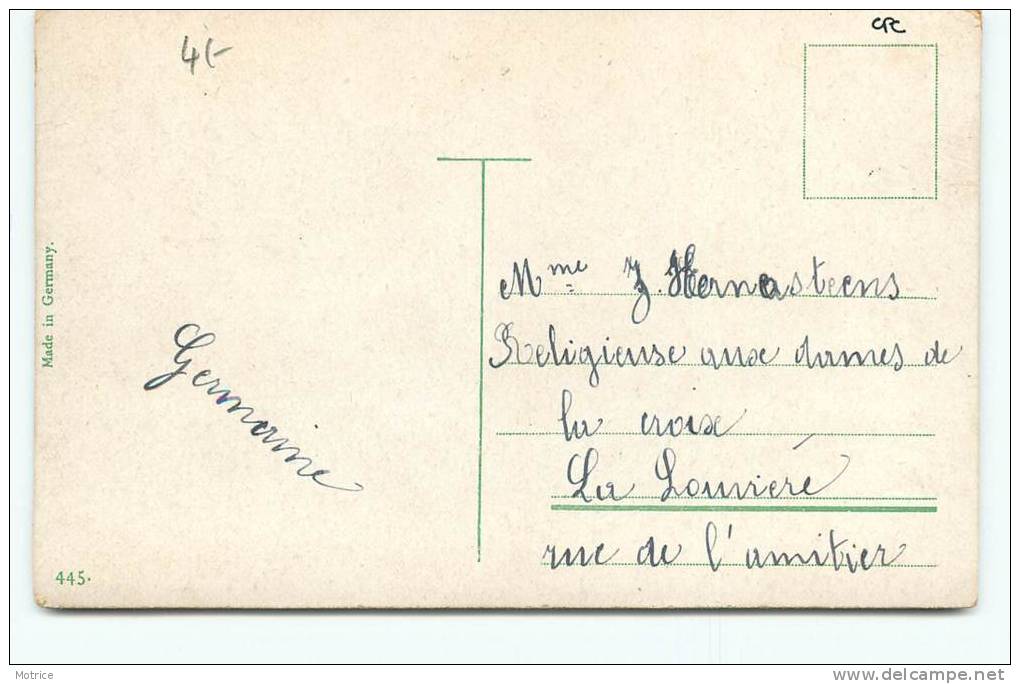 CPC
4/-
Made in Germany.
Mme J. Hernasteens
Religieuse aux dames de
la croix
La Louvière
rue de l'amitier
Germaine
445.
Motrice
www.delcampe.net